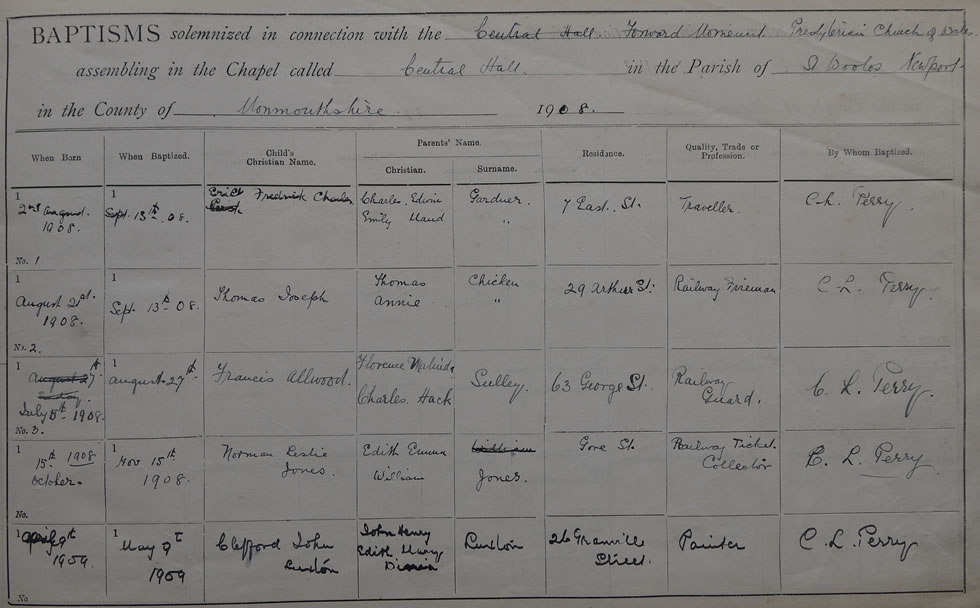 BAPTISMS solemnized in connection with the Central Hall Forward Movement Presbyterian Church of Wales.
assembling in the Chapel called Central Hall. in the Parish of St Woolos Newport
in the County of Monmouthshire. 1908.
When Born When Baptized. Child's Christian Name. Parents' Name. Christian. Surname. Residence. Quality, Trade or Profession. By Whom Baptized.
1 1 Eric Fredrick Charles Charles. Edwin Gardner. 7 East. St. Traveller. C.L. Perry.
2nd August. Sept. 13th 08. Emily Maud "
1908.
No. 1
1 1 Thomas Chicken
August 21st. Sept. 13th 08. Thomas Joseph Annie " 29 Arthur St. Railway Fireman C. L. Perry.
1908.
No. 2.
1 1 Florence Malinda
August 27th August 27th Francis Allwood. Sulley. 63 George St. Railway C. L. Perry.
July 5th 1908. Charles. Hack Guard.
No. 3.
1 1
15th 1908 Nov 15th Norman Leslie Edith Emma William Gore St. Railway Ticket
October. 1908. Jones. William Jones. Collector C. L. Perry
No.
1 1 John Henry
April 9th May 9th Clifford John Edith Mary Luxton 26 Granville Painter C. L. Perry
1909. 1909 Luxton Street.
No